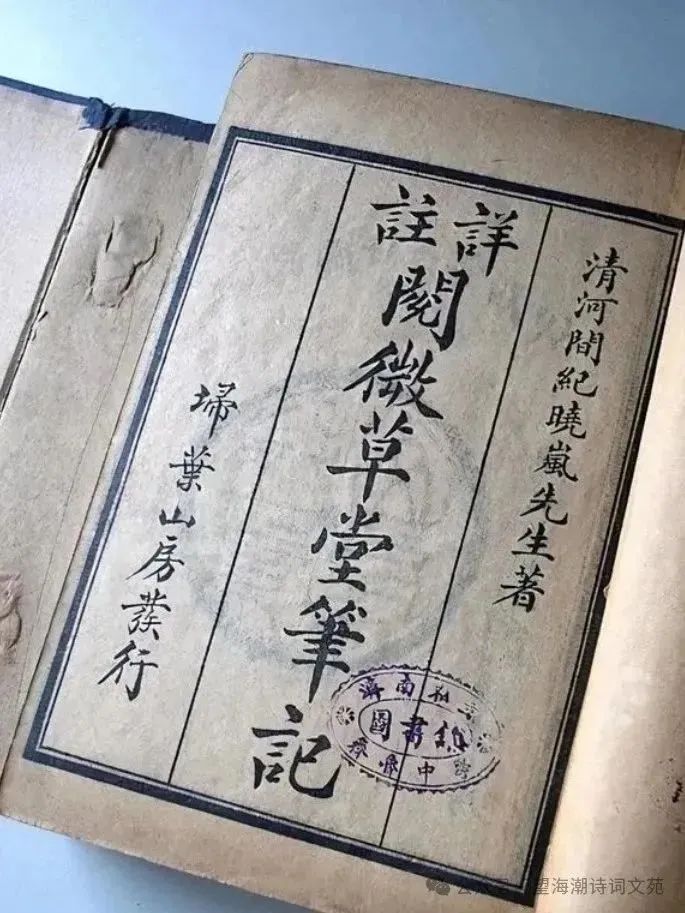 清河間紀曉嵐先生著
詳註閱微草堂筆記
埽葉山房發行
濟南
圖書
中
望海潮诗词文苑